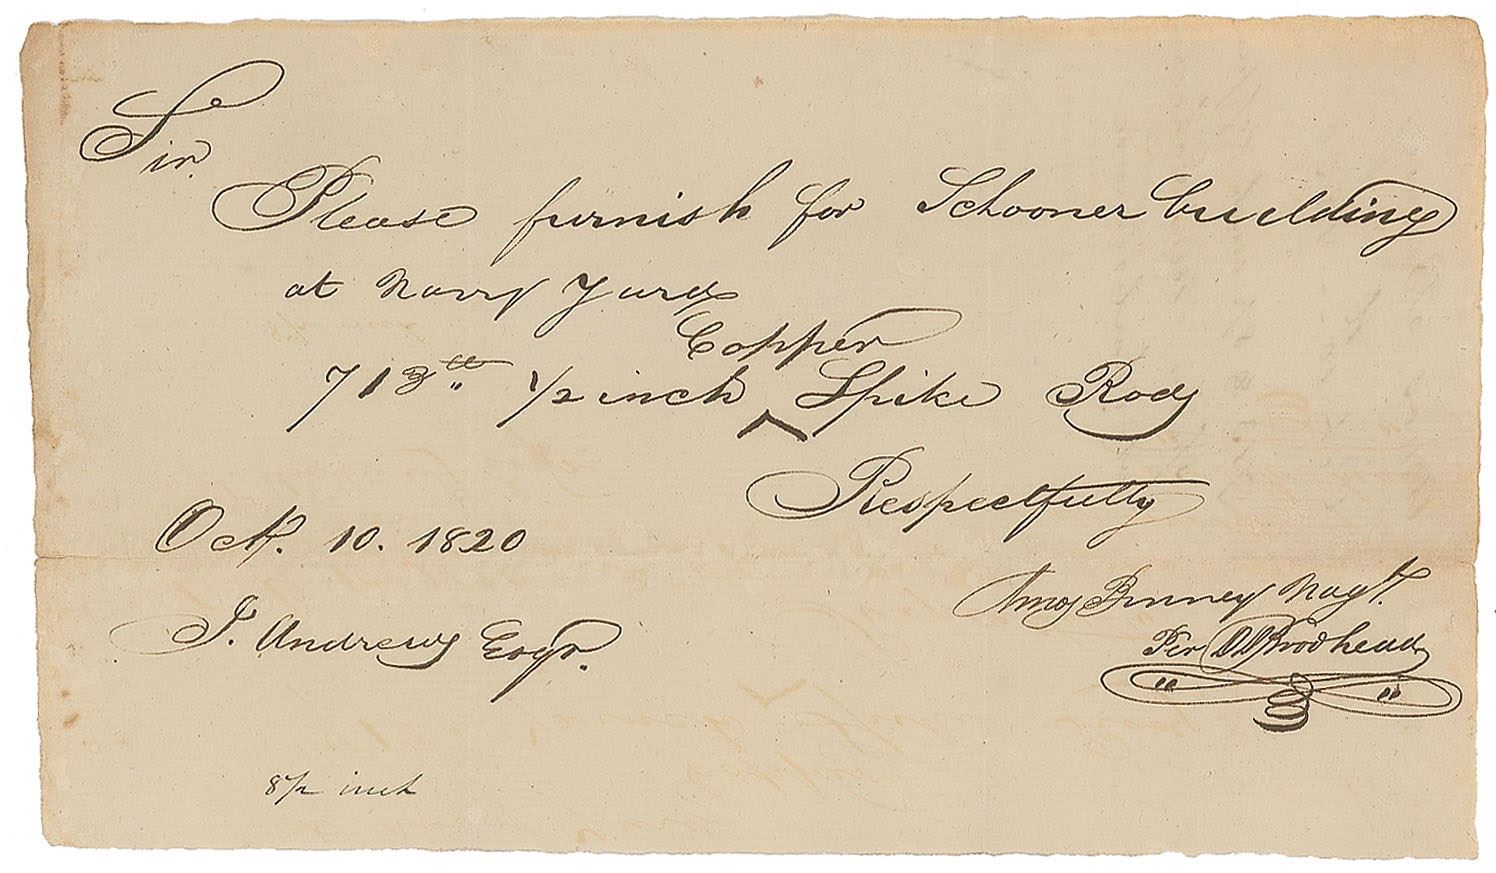 Sir.
Please furnish for Schooner building
at Navy Yard
Copper
713 lb 1/2 inch ^ Spike Rods
Respectfully
Octr. 10. 1820
Amos Binney Nagt.
J. Andrews Esqr.
Per DDBrodhead
8 1/2 inch